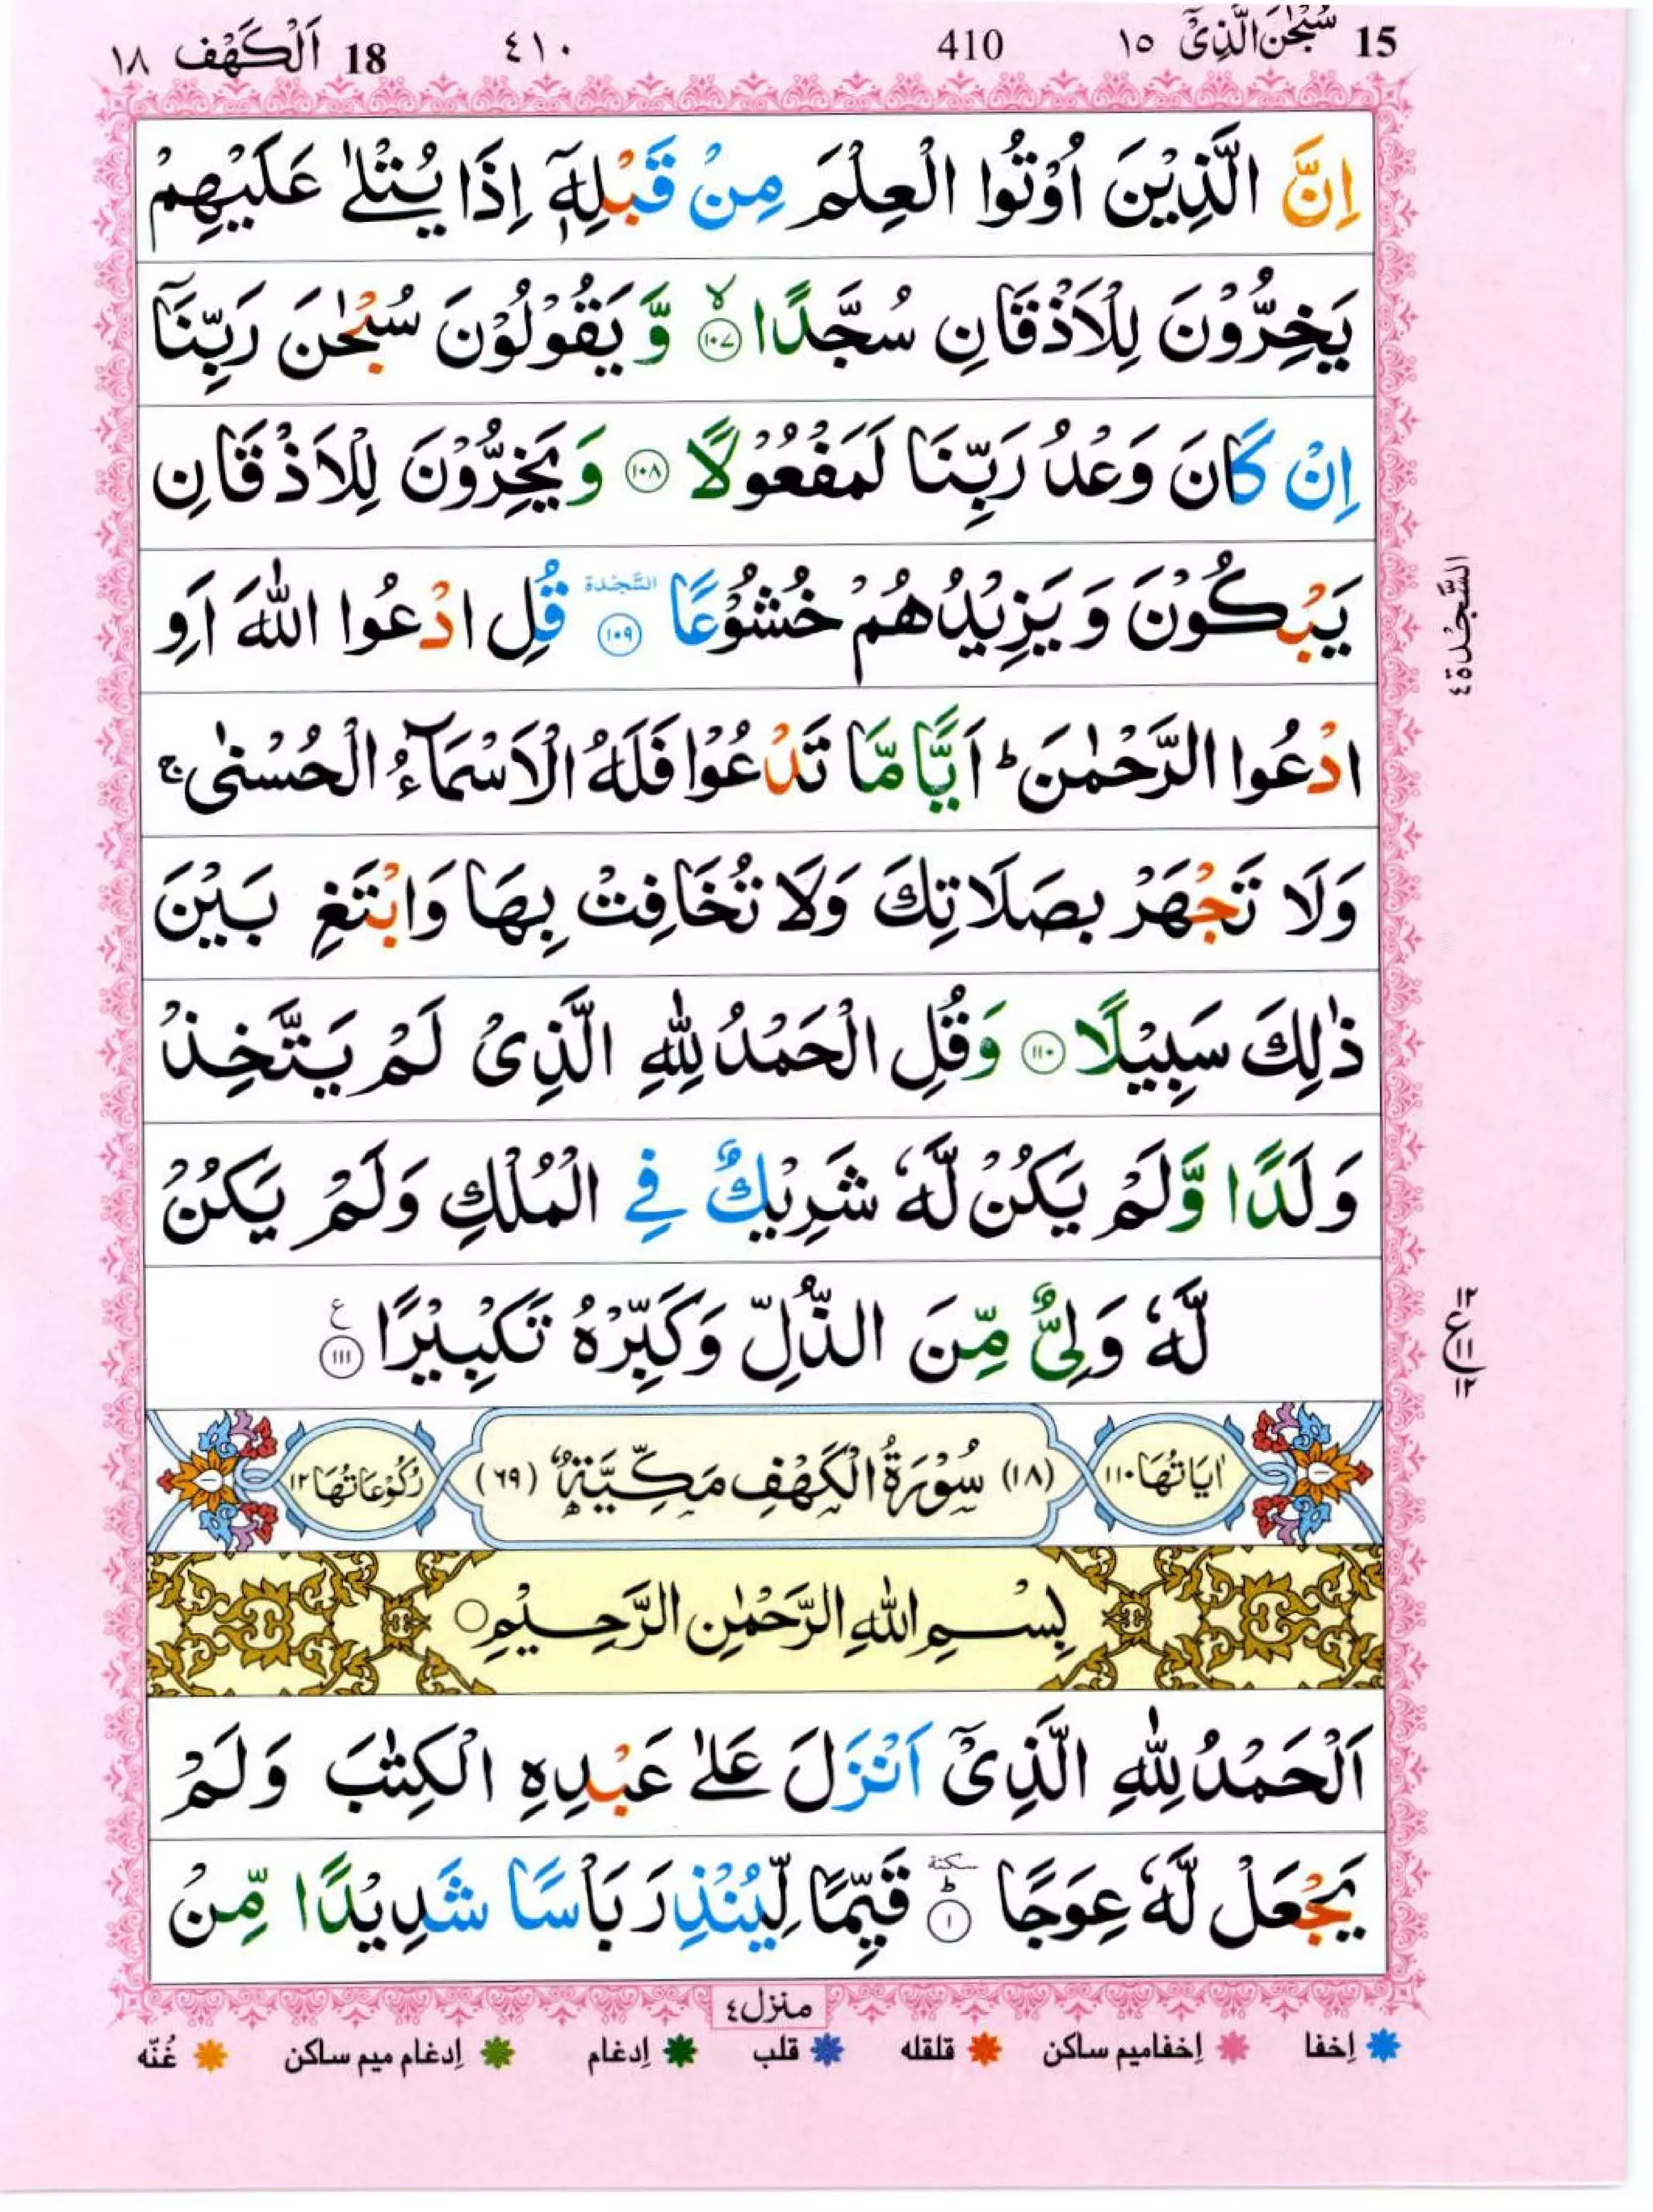 15 سُبْحٰنَ الَّذِیْۤ ١٥ 410 ٤١٠ 18 اَلْكَهْف ١٨
اِنَّ الَّذِیْنَ اُوْتُوا الْعِلْمَ مِنْ قَبْلِهٖۤ اِذَا یُتْلٰی عَلَیْهِمْ
یَخِرُّوْنَ لِلْاَذْقَانِ سُجَّدًا ۙ‏ ١٠٧ وَّ یَقُوْلُوْنَ سُبْحٰنَ رَبِّنَاۤ
اِنْ كَانَ وَعْدُ رَبِّنَا لَمَفْعُوْلًا ١٠٨ وَ یَخِرُّوْنَ لِلْاَذْقَانِ
یَبْكُوْنَ وَ یَزِیْدُهُمْ خُشُوْعًا السَّجْدة ١٠٩ قُلِ ادْعُوا اللّٰهَ اَوِ
السَّجْدة ٤
ادْعُوا الرَّحْمٰنَ ؕ اَیًّا مَّا تَدْعُوْا فَلَهُ الْاَسْمَآءُ الْحُسْنٰی ۚ
وَلَا تَجْهَرْ بِصَلَاتِكَ وَلَا تُخَافِتْ بِهَا وَابْتَغِ بَیْنَ
ذٰلِكَ سَبِیْلًا ١١٠ وَقُلِ الْحَمْدُ لِلّٰهِ الَّذِیْ لَمْ یَتَّخِذْ
وَلَدًا وَّلَمْ یَكُنْ لَّهٗ شَرِیْكٌ فِی الْمُلْكِ وَلَمْ یَكُنْ
لَّهٗ وَلِیٌّ مِّنَ الذُّلِّ وَكَبِّرْهُ تَكْبِیْرًا ع ١١١
١٢ ع ١١ ١٢
اٰیَاتُهَا ١١٠ (١٨) سُوْرَةُ الْكَهْفِ مَكِّیَّةٌ (٦٩) رُكُوْعَاتُهَا ١٢
بِسْمِ اللّٰهِ الرَّحْمٰنِ الرَّحِیْمِ
اَلْحَمْدُ لِلّٰهِ الَّذِیْۤ اَنْزَلَ عَلٰی عَبْدِهِ الْكِتٰبَ وَلَمْ
یَجْعَلْ لَّهٗ عِوَجًا سكتة ؕ ١ قَیِّمًا لِّیُنْذِرَ بَاْسًا شَدِیْدًا مِّنْ
منزل ٤
اِخفا اِخفا میم ساکن قلقله قلب اِدغام اِدغام میم ساکن غُنّه